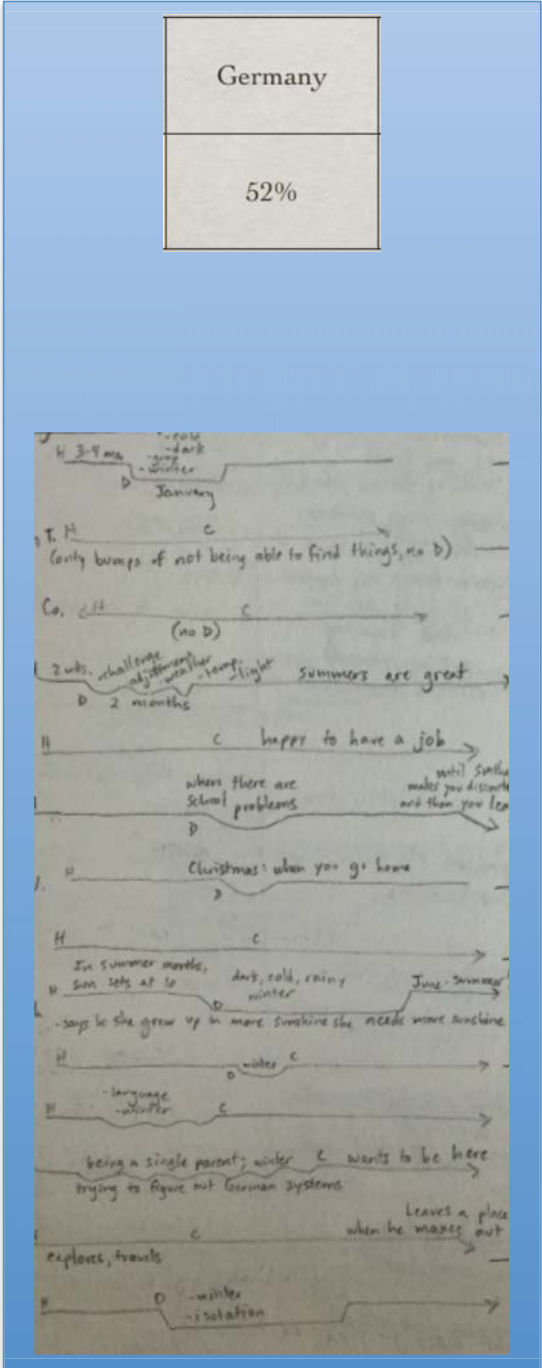 Germany
52%
-cold
-dark
H 3-4 mo. -gray
-winter
D
January
T. H C
(only bumps of not being able to find things, no D)
Co. H C
(no D)
2 wks. -challenge
adjustment
-weather
-temp.
-light
summers are great
D 2 months
H C happy to have a job
until
makes you
and then you
when there are
school problems
D
H Christmas: when you go home
D
H C
In summer months,
sun sets at 10
dark, cold, rainy
winter
June - summer
H D
-says bc she grew up in more sunshine she needs more sunshine
H winter C
D
-language
H -winter C
being a single parent; winter C wants to be here
trying to figure out German systems
Leaves a place
C when he maxes out
explores, travels
H D -winter
-isolation